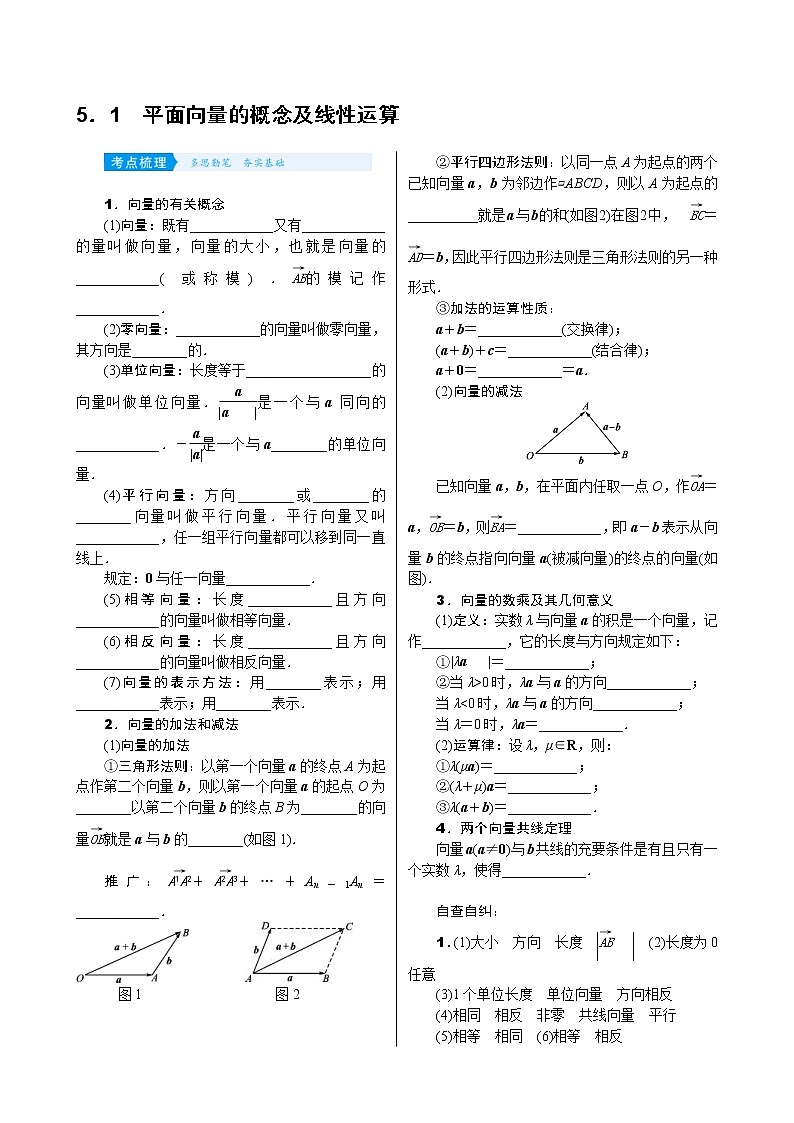 5．1　平面向量的概念及线性运算
考点梳理 多思勤笔 夯实基础
1．向量的有关概念
(1)向量：既有____________又有____________
的量叫做向量，向量的大小，也就是向量的
____________(或称模)．AB→的模记作
____________．
(2)零向量：____________的向量叫做零向量，
其方向是________的．
(3)单位向量：长度等于__________________的
向量叫做单位向量．a/|a|是一个与a同向的
____________．－a/|a|是一个与a________的单位向
量．
(4)平行向量：方向________或________的
________向量叫做平行向量．平行向量又叫
____________，任一组平行向量都可以移到同一直
线上．
规定：0与任一向量____________．
(5)相等向量：长度____________且方向
____________的向量叫做相等向量．
(6)相反向量：长度____________且方向
____________的向量叫做相反向量．
(7)向量的表示方法：用________表示；用
____________表示；用________表示．
2．向量的加法和减法
(1)向量的加法
①三角形法则：以第一个向量a的终点A为起
点作第二个向量b，则以第一个向量a的起点O为
________以第二个向量b的终点B为________的向
量OB→就是a与b的________(如图1)．
推广：A1A2→＋A2A3→＋…＋An－1An＝
____________．
O a A b B a+b
图1
A a B b D C a+b
图2
②平行四边形法则：以同一点A为起点的两个
已知向量a，b为邻边作▱ABCD，则以A为起点的
__________就是a与b的和(如图2)在图2中，BC→＝
AD→＝b，因此平行四边形法则是三角形法则的另一种
形式．
③加法的运算性质：
a＋b＝____________(交换律)；
(a＋b)＋c＝____________(结合律)；
a＋0＝____________＝a．
(2)向量的减法
A
a a−b
O b B
已知向量a，b，在平面内任取一点O，作OA→＝
a，OB→＝b，则BA→＝____________，即a－b表示从向
量b的终点指向向量a(被减向量)的终点的向量(如
图)．
3．向量的数乘及其几何意义
(1)定义：实数λ与向量a的积是一个向量，记
作____________，它的长度与方向规定如下：
①|λa|＝____________；
②当λ>0时，λa与a的方向____________；
当λ<0时，λa与a的方向____________；
当λ＝0时，λa＝____________．
(2)运算律：设λ，μ∈R，则：
①λ(μa)＝____________；
②(λ＋μ)a＝____________；
③λ(a＋b)＝____________．
4．两个向量共线定理
向量a(a≠0)与b共线的充要条件是有且只有一
个实数λ，使得____________．
自查自纠：
1.(1)大小　方向　长度　|AB→|　(2)长度为0
任意
(3)1个单位长度　单位向量　方向相反
(4)相同　相反　非零　共线向量　平行
(5)相等　相同　(6)相等　相反